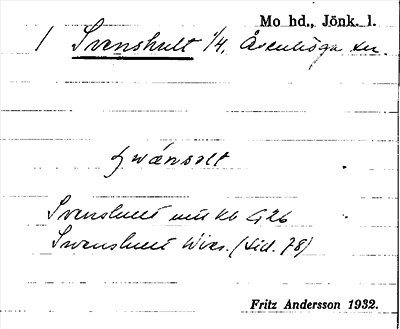 Mo hd., Jönk. l.
1 Svenshult 1/4, Åsenhöga sn
Svenshult mtl kb G26
Swenshult Wies. (sid. 78)
Fritz Andersson 1932.